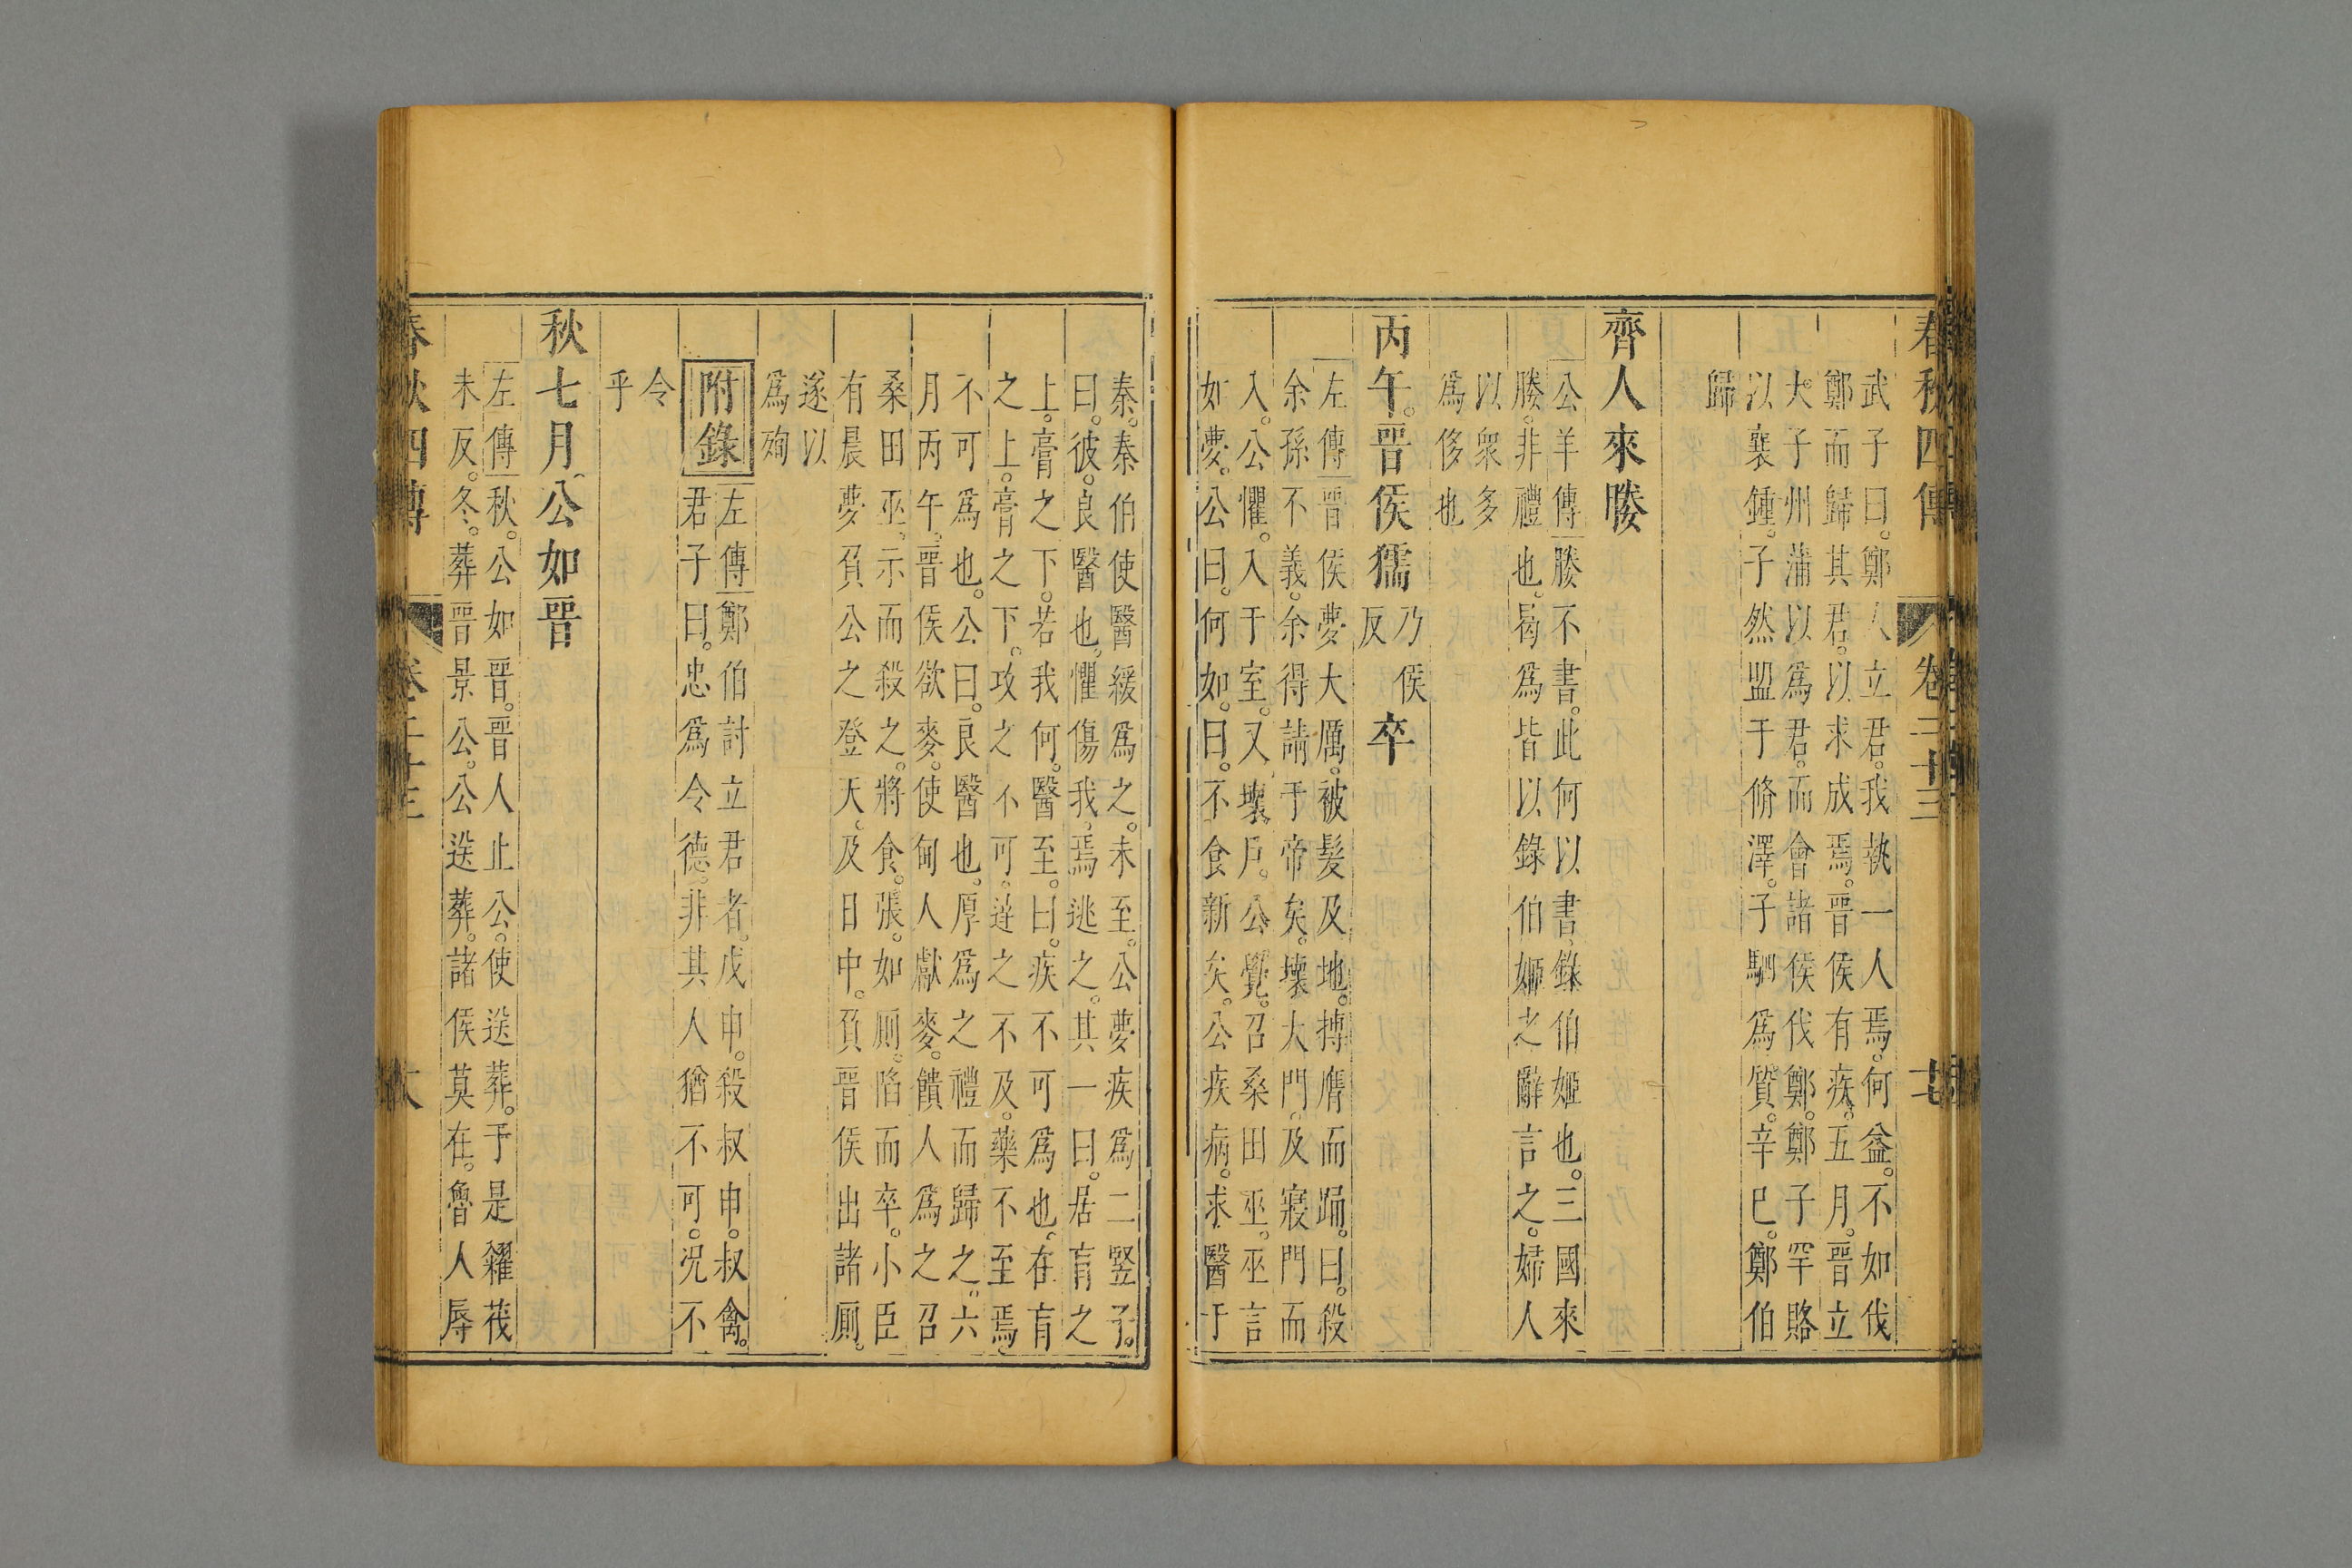 春秋四傳 卷二十三 十七
武子曰鄭人立君我執一人焉何益不如伐
鄭而歸其君以求成焉晉侯有疾五月晉立
大子州蒲以爲君而會諸侯伐鄭鄭子罕賂
以襄鍾子然盟于脩澤子駟爲質辛巳鄭伯
歸
齊人來媵
公羊傳媵不書此何以書錄伯姬也三國來
媵非禮也曷爲皆以錄伯姬之辭言之婦人
以衆多
爲侈也
丙午晉侯獳乃侯反卒
左傳晉侯夢大厲被髮及地搏膺而踊曰殺
余孫不義余得請于帝矣壞大門及寢門而
入公懼入于室又壞戶公覺召桑田巫巫言
如夢公曰何如曰不食新矣公疾病求醫于
秦秦伯使醫緩爲之未至公夢疾爲二豎子
曰彼良醫也懼傷我焉逃之其一曰居肓之
上膏之下若我何醫至曰疾不可爲也在肓
之上膏之下攻之不可達之不及藥不至焉
不可爲也公曰良醫也厚爲之禮而歸之六
月丙午晉侯欲麥使甸人獻麥饋人爲之召
桑田巫示而殺之將食張如厠陷而卒小臣
有晨夢負公之登天及日中負晉侯出諸厠
遂以
爲殉
附錄
左傳鄭伯討立君者戊申殺叔申叔禽
君子曰忠爲令德非其人猶不可況不
令
乎
秋七月公如晉
左傳秋公如晉晉人止公使送葬于是糴茷
未反冬葬晉景公公送葬諸侯莫在魯人辱
春秋四傳 卷二十三